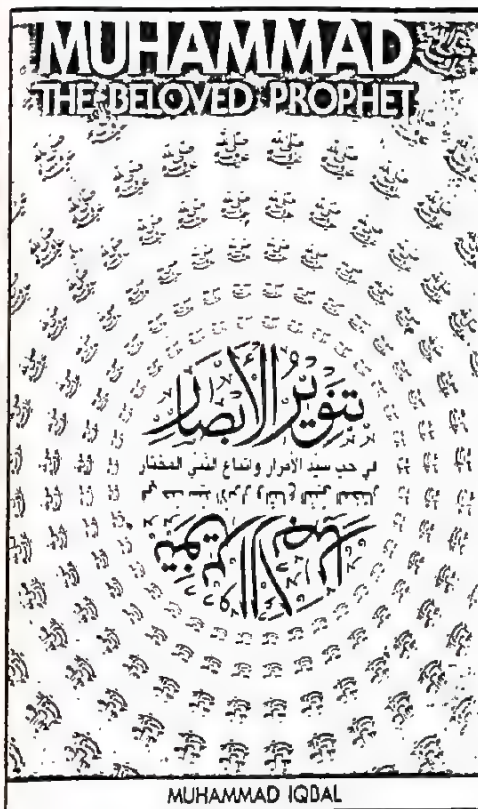 MUHAMMAD
THE BELOVED PROPHET
تنوير الأبصار
في حب سيد الأبرار واتباع النبي المختار
MUHAMMAD IQBAL